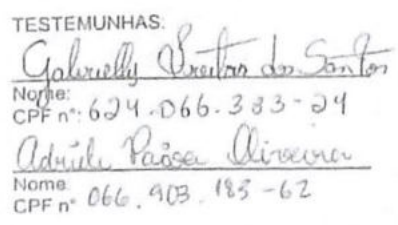 TESTEMUNHAS:
Gabrielly Freitas dos Santos
Nome:
CPF nº: 624.066.383-24
Adriele Oliveira
Nome
CPF nº 066.903.183-62